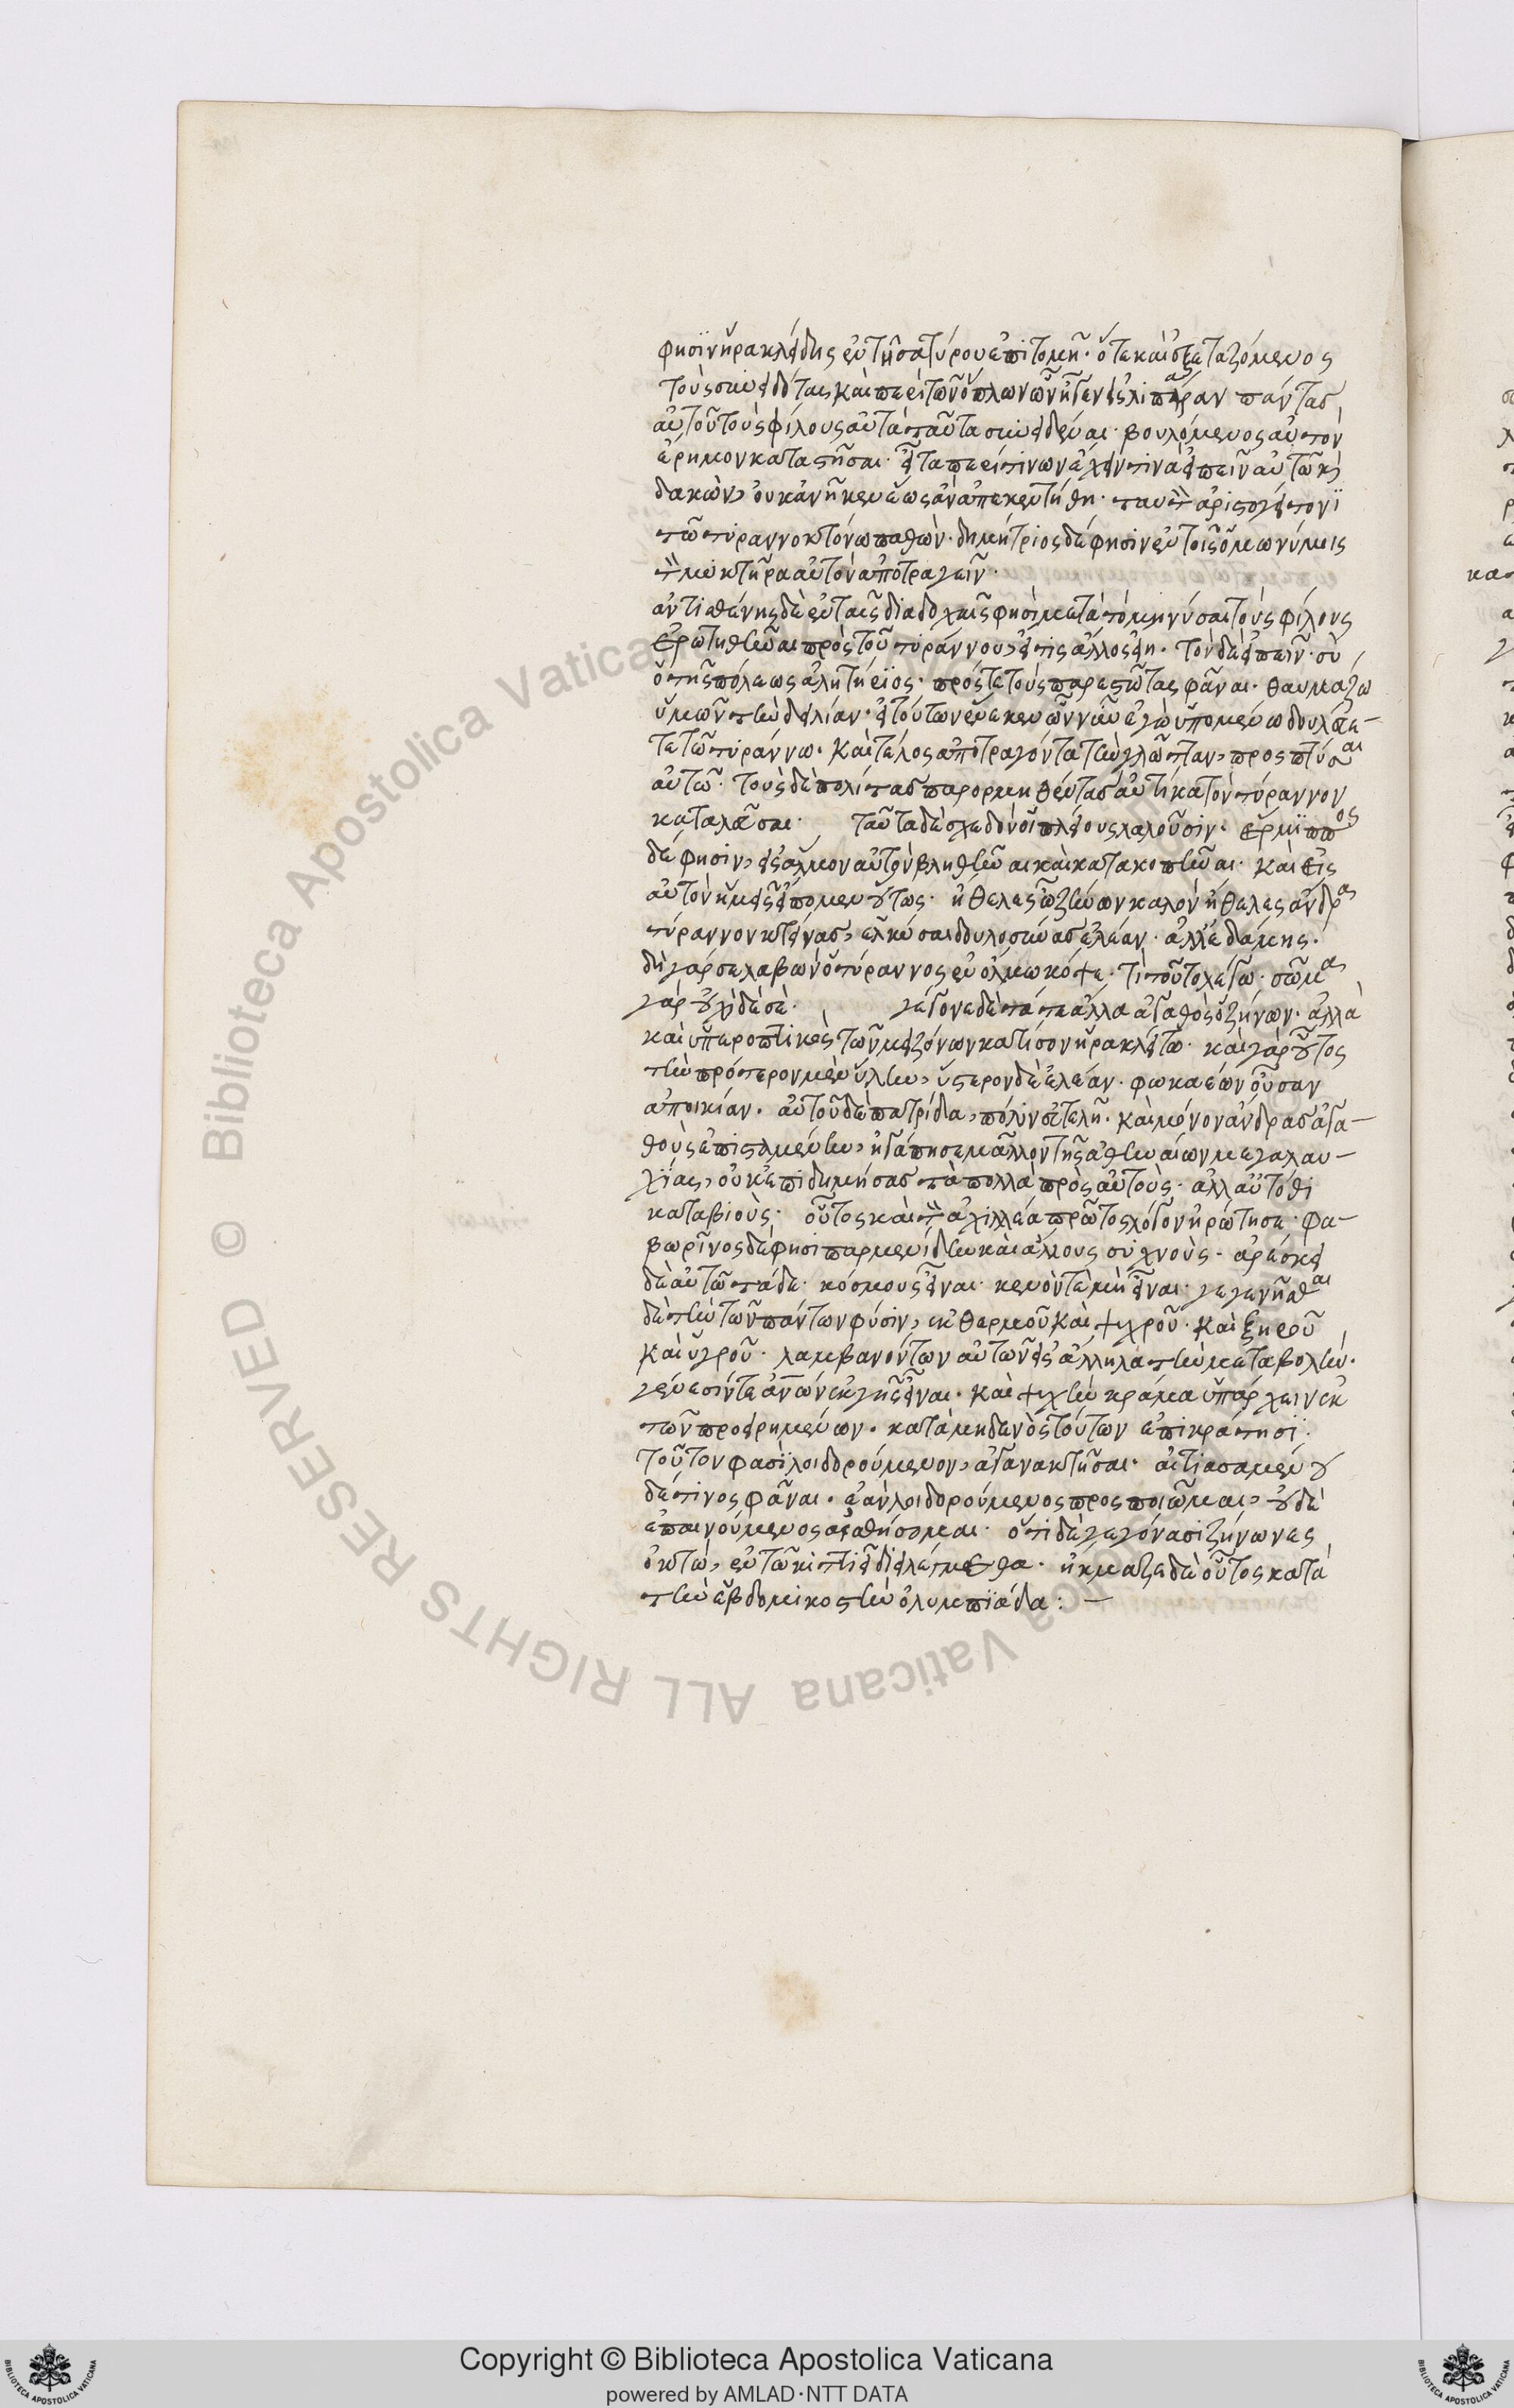 φησὶν ἡρακλείδης ἐν τῆ σατύρου ἐπιτομῆ· ὅτε καὶ ἐξεταζόμενος
τοὺς συνειδότας καὶ περὶ τῶν ὅπλων ὧν ἦγεν εἰς λιπάραν πάντας
αὐτοῦ τοὺς φίλους αὐτὰ ταῦτα συνειδέναι· βουλόμενος αὐτὸν
ἐρημον καταστῆσαι· εἶτα περί τινων ἔχειν τινὰ εἰπεῖν αὐτῶ κỳ
δακὼν, οὐκ ἀνῆκεν ἕως ἀν ἀπεκεντήθη· ταυτὸ ἀριστογείτονϊ
τῶ τυραννοκτόνω παθὼν· δημήτριος δέ φησιν ἐν τοῖς ὁμωνύμοις
τὸν μυκτῆρα αὐτὸν ἀποτραγεῖν·
ἀντισθένης δὲ ἐν ταῖς διαδοχαῖς φησὶ μετὰ τὸ μηνύσαι τοὺς φίλους
ἐρωτηθῆναι πρὸς τοῦ τυράννου, εἴ τις ἄλλος εἴη· τὸν δὲ εἰπεῖν· σὺ
ὁ τῆς πόλεως ἀλητήριος· πρός τε τοὺς παρεστῶτας φάναι· θαυμάζω
ὑμῶν τὴν δειλίαν· εἰ τούτων ἕνεκεν ὧν νῦν ἐγὼ ὑπομένω δουλεύε-
τε τῶ τυράννω· καὶ τέλος ἀποτραγόντα τὴν γλῶτταν, προσπτύσαι
αὐτῶ· τοὺς δὲ πολίτας παρορμηθέντας αὐτίκα τὸν τύραννον
καταλεῦσαι· ταῦτα δὲ σχεδὸν οἱ πλείους λαλοῦσιν· ἕρμϊππος
δέ φησιν, εἰς ὅλμον αὐτὸν βληθῆναι καὶ κατακοπῆναι· καὶ εἰς
αὐτὸν ἡμεῖς εἴπομεν οὕτως· ἤθελες ὦ ζήνων καλὸν ἤθελες ἄνδρα
τύραννον κτείνας, ἐλκύσαι δουλοσύνας ἐλέαν· ἀλλ' ἐδάμης·
δὴ γάρ σε λαβὼν ὁ τύραννος ἐν ὅλμω κόψε· τί τοῦτο λέγω· σῶμα
γὰρ οὐχὶ δὲ σέ· γέγονε δὲ τά τε ἄλλα ἀγαθὸς ὁ ζήνων· ἀλλὰ
καὶ ὑπεροπτικὸς τῶν μειζόνων κατίσον ἡρακλείτω· καὶ γὰρ οὗτος
τὴν πρότερον μὲν ὕλην, ὕστερον δὲ ἐλέαν· φωκαέων οὖσαν
ἀποικίαν· αὐτοῦ δὲ πατρίδα, πόλιν εὐτελῆ· καὶ μόνον ἄνδρας ἀγα-
θοὺς ἐπισταμένην, ἠγάπησε μᾶλλον τῆς ἀθηναίων μεγαλαυ-
χίας, οὐκ ἐπιδημήσας τὰ πολλὰ πρὸς αὐτοὺς· ἀλλ' αὐτόθι
καταβιοὺς· οὗτος καὶ τὸν ἀχιλλέα πρῶτος λόγον ἠρώτησε· φα-
βωρῖνος δέ φησι παρμενίδην καὶ ἄλλους συχνοὺς· ἀρέσκει
δὲ αὐτῶ τάδε· κόσμους εἶναι· κενόν τε μὴ εἶναι· γεγενῆσθαι
δὲ τὴν τῶν πάντων φύσιν, ἐκ θερμοῦ καὶ ψυχροῦ· καὶ ξηροῦ
καὶ ὑγροῦ· λαμβανόντων αὐτῶν εἰς ἄλληλα τὴν μεταβολήν·
γένεσίν τε ἀν̅ω̅ν ἐκ γῆς εἶναι· καὶ ψυχὴν κράμα ὑπάρχειν ἐκ
τῶν προειρημένων· κατὰ μηδενὸς τούτων ἐπικράτησϊ·
τοῦτον φασὶ λοιδορούμενον, ἀγανακτῆσαι· αἰτιασαμένου
δέ τινος φάναι· ἐὰν λοιδορούμενος προσποιῶμαι, οὐδὲ
ἐπαινούμενος αἰσθήσομαι· ὅτι δὲ γεγόνασι ζήνωνες
ὀκτὼ, ἐν τῶ κιττιεῖ διειλέγμεθα· ἤκμαζε δὲ οὗτος κατὰ
τὴν ἑβδομικοστὴν ὀλυμπϊάδα: —
Copyright © Biblioteca Apostolica Vaticana
powered by AMLAD·NTT DATA
© Biblioteca Apostolica Vaticana ALL RIGHTS RESERVED